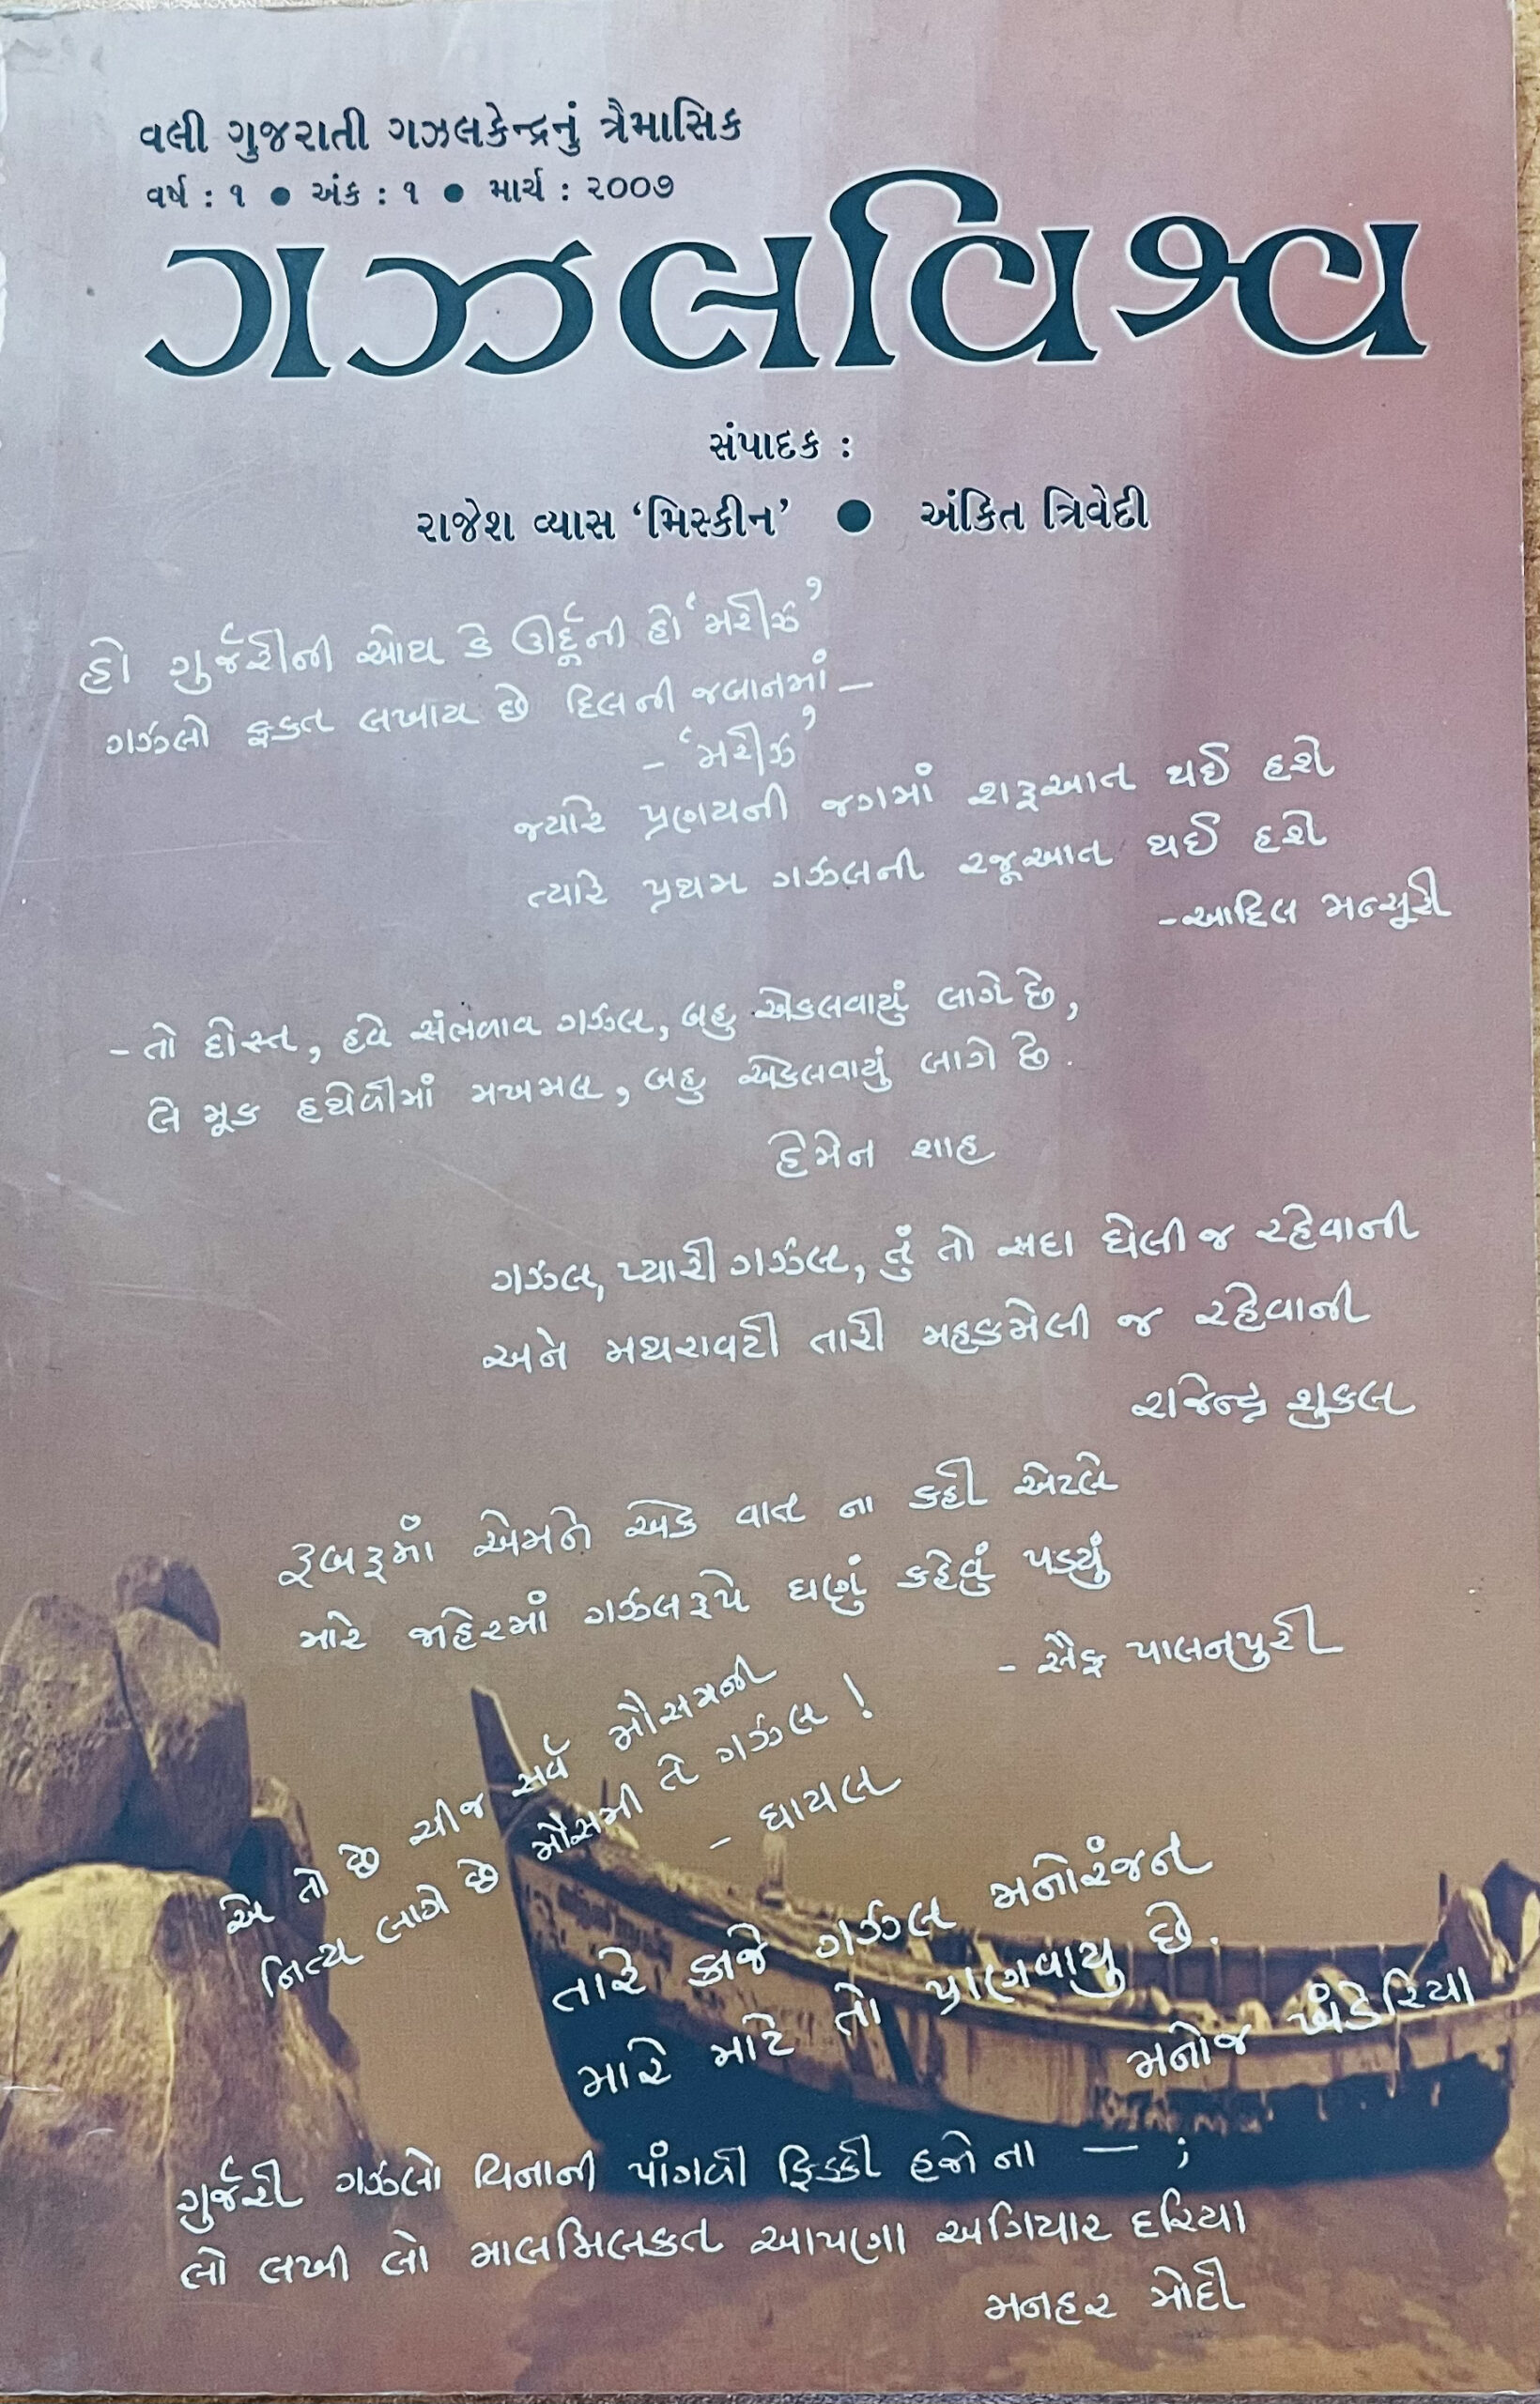 વલી ગુજરાતી ગઝલકેન્દ્રનું ત્રૈમાસિક
વર્ષ : ૧ ● અંક : ૧ ● માર્ચ : ૨૦૦૭
ગઝલવિશ્વ
સંપાદક :
રાજેશ વ્યાસ ‘મિસ્કીન’ ● અંકિત ત્રિવેદી
હો ગુર્જરીની ઓથ કે ઊર્દૂની હો ‘મરીઝ’
ગઝલો ફક્ત લખાય છે દિલની જબાનમાં –
– ‘મરીઝ’
જ્યારે પ્રણયની જગમાં શરૂઆત થઈ હશે
ત્યારે પ્રથમ ગઝલની રજૂઆત થઈ હશે
- આદિલ મન્સૂરી
- તો દોસ્ત, હવે સંભળાવ ગઝલ, બહુ એકલવાયું લાગે છે,
લે મૂક હથેળીમાં મખમલ, બહુ એકલવાયું લાગે છે.
હેમેન શાહ
ગઝલ, પ્યારી ગઝલ, તું તો સદા ઘેલી જ રહેવાની
અને મથરાવટી તારી મહકમેલી જ રહેવાની
રાજેન્દ્ર શુકલ
રૂબરૂમાં એમને એકે વાત ના કહી એટલે
મારે જાહેરમાં ગઝલરૂપે ઘણું કહેવું પડ્યું
- સૈફ પાલનપુરી
એ તો છે ચીજ સર્વ મૌસમની
નિત્ય લાગે છે મૌસમી તે ગઝલ !
- ઘાયલ
તારે કાજે ગઝલ મનોરંજન
મારે માટે તો પ્રાણવાયુ છે.
મનોજ ખંડેરિયા
ગુર્જરી ગઝલો વિનાની પાંગળી ફિક્કી હજો ના — ;
લો લખી લો માલમિલકત આપણા અગિયાર દરિયા
મનહર મોદી